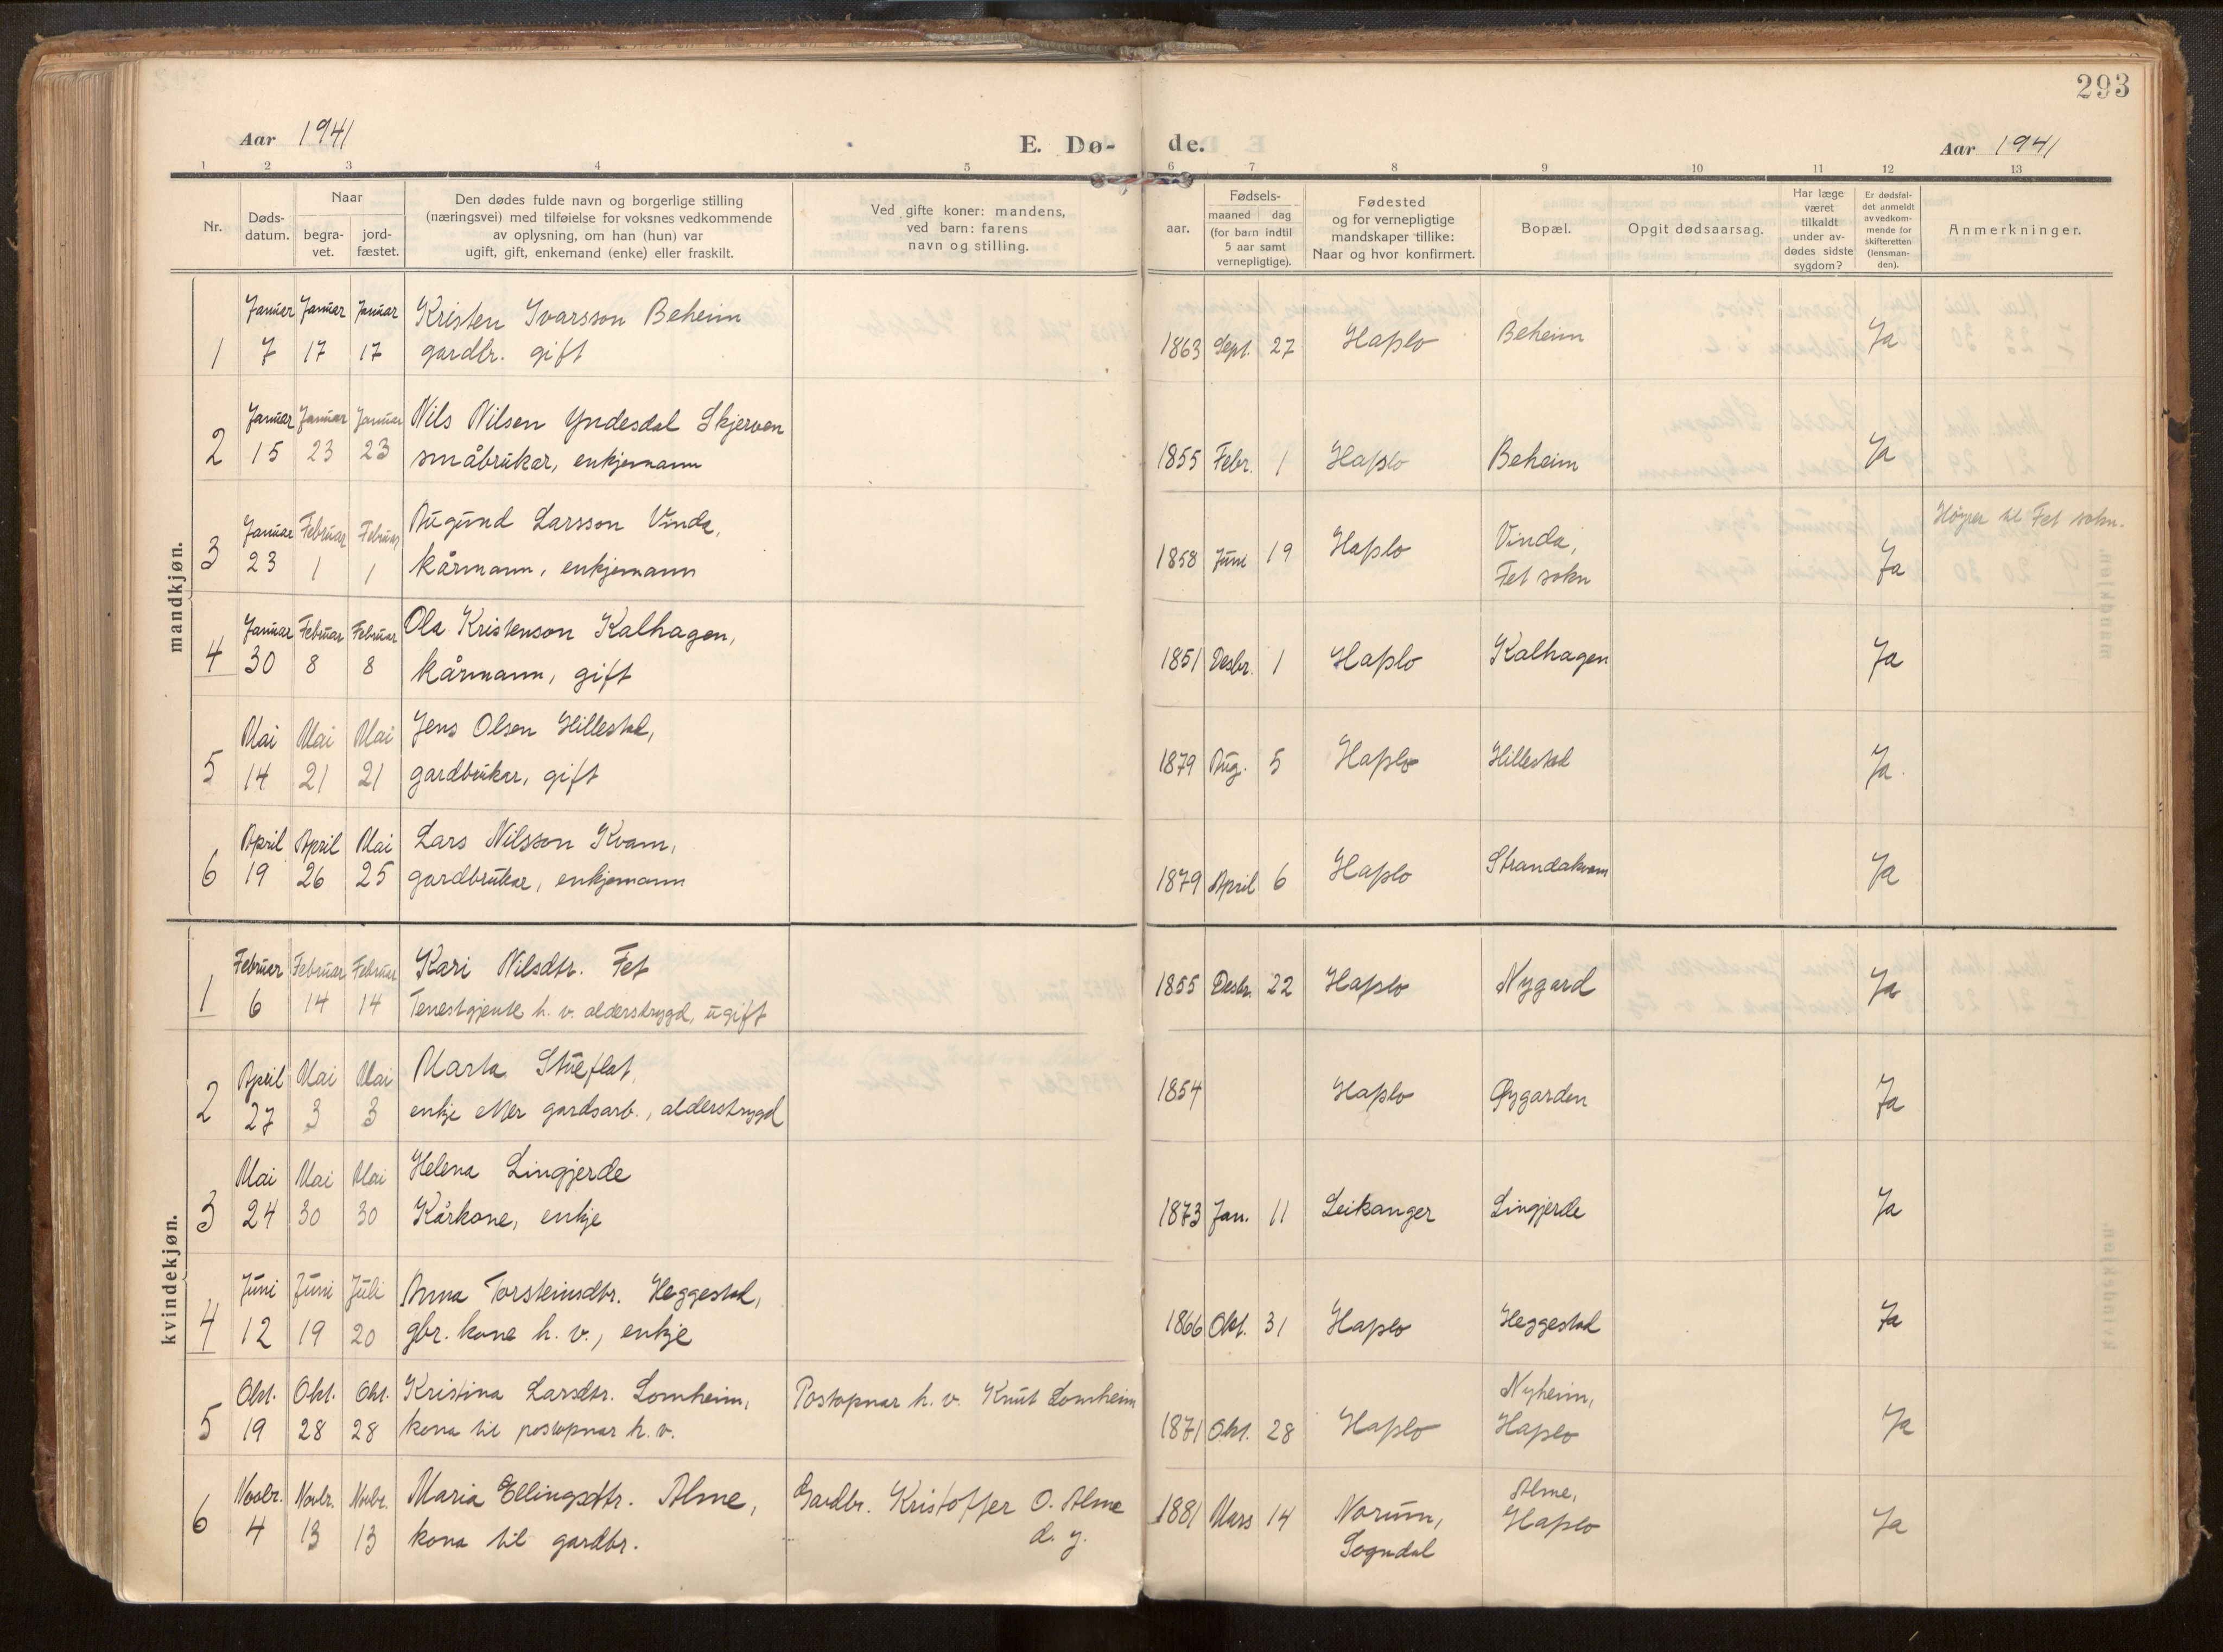 293
Aar 1941
E. Dø- de.
Aar 1941
1 2 3 4 5 6 7 8 9 10 11 12 13
Nr.
Døds-
datum.
Naar
begra-
vet.
jord-
fæstet.
Den dødes fulde navn og borgerlige stilling
(næringsvei) med tilføielse for voksnes vedkommende
av oplysning, om han (hun) var
ugift, gift, enkemand (enke) eller fraskilt.
Ved gifte koner: mandens,
ved barn: farens
navn og stilling.
aar.
Fødsels-
maaned dag
(for barn indtil
5 aar samt
vernepligtige).
Fødested
og for vernepligtige
mandskaper tillike:
Naar og hvor konfirmert.
Bopæl.
Opgit dødsaarsag.
Har læge
været
tilkaldt
under av-
dødes sidste
sygdom?
Er dødsfal-
det anmeldt
av vedkom-
mende for
skifteretten
(lensman-
den).
Anmerkninger.
mandkjøn.
Januar Januar Januar Kristen Ivarsson Beheim
1 7 17 17 gardbr. gift 1863 Sept. 27 Hafslo Beheim Ja
Januar Januar Januar Nils Nilsen Yndesdal Skjerven
2 15 23 23 småbrukar, enkjemann 1855 Febr. 1 Hafslo Beheim Ja
Januar Februar Februar Augund Larsson Vinda, Vinda, Høyrer til Fet sokn.
3 23 1 1 kårmann, enkjemann 1858 Juni 19 Hafslo Fet sokn Ja
Januar Februar Februar Ola Kristenson Kalhagen,
4 30 8 8 kårmann, gift 1851 Desbr. 1 Hafslo Kalhagen Ja
Mai Mai Mai Jens Olsen Hillestad,
5 14 21 21 gardbrukar, gift 1879 Aug. 5 Hafslo Hillestad Ja
April April Mai Lars Nilsson Kvam,
6 19 26 25 gardbrukar, enkjemann 1879 April 6 Hafslo Strandakvam Ja
kvindekjøn.
Februar Februar Februar Kari Nilsdtr. Fet
1 6 14 14 Tenestgjente h. v. alderstrygd, ugift 1855 Desbr. 22 Hafslo Nygard Ja
April Mai Mai Marta Stueflat,
2 27 3 3 enkje etter gardsarb., alderstrygd 1854 Hafslo Øygarden Ja
Mai Mai Mai Helena Lingjerde
3 24 30 30 Kårkone, enkje 1873 Jan. 11 Leikanger Lingjerde Ja
Juni Juni Juli Anna Torsteinsdtr. Heggestad,
4 12 19 20 gbr. kone h. v., enkje 1866 Okt. 31 Hafslo Heggestad Ja
Okt. Okt. Okt. Kristina Larsdtr. Lomheim, Postopnar h. v. Knut Lomheim Nyheim,
5 19 28 28 kona til postopnar h. v. 1871 Okt. 28 Hafslo Hafslo Ja
Novbr. Novbr. Novbr. Maria Ellingsdtr. Alme, Gardbr. Kristoffer O. Alme 1881 Mars 14 Norum, Alme,
6 4 13 13 kona til gardbr. d. y. Sogndal Hafslo Ja